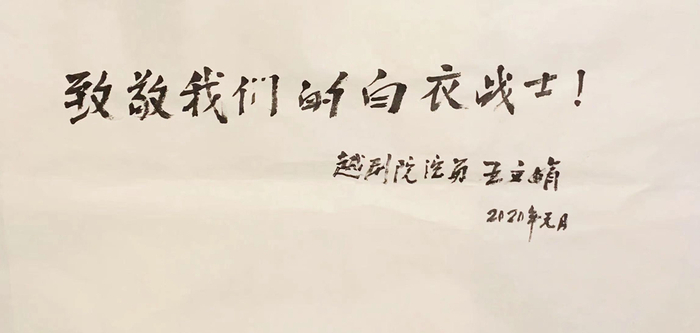 致敬我们的白衣战士!
越剧院演员 王文娟
2020年元月